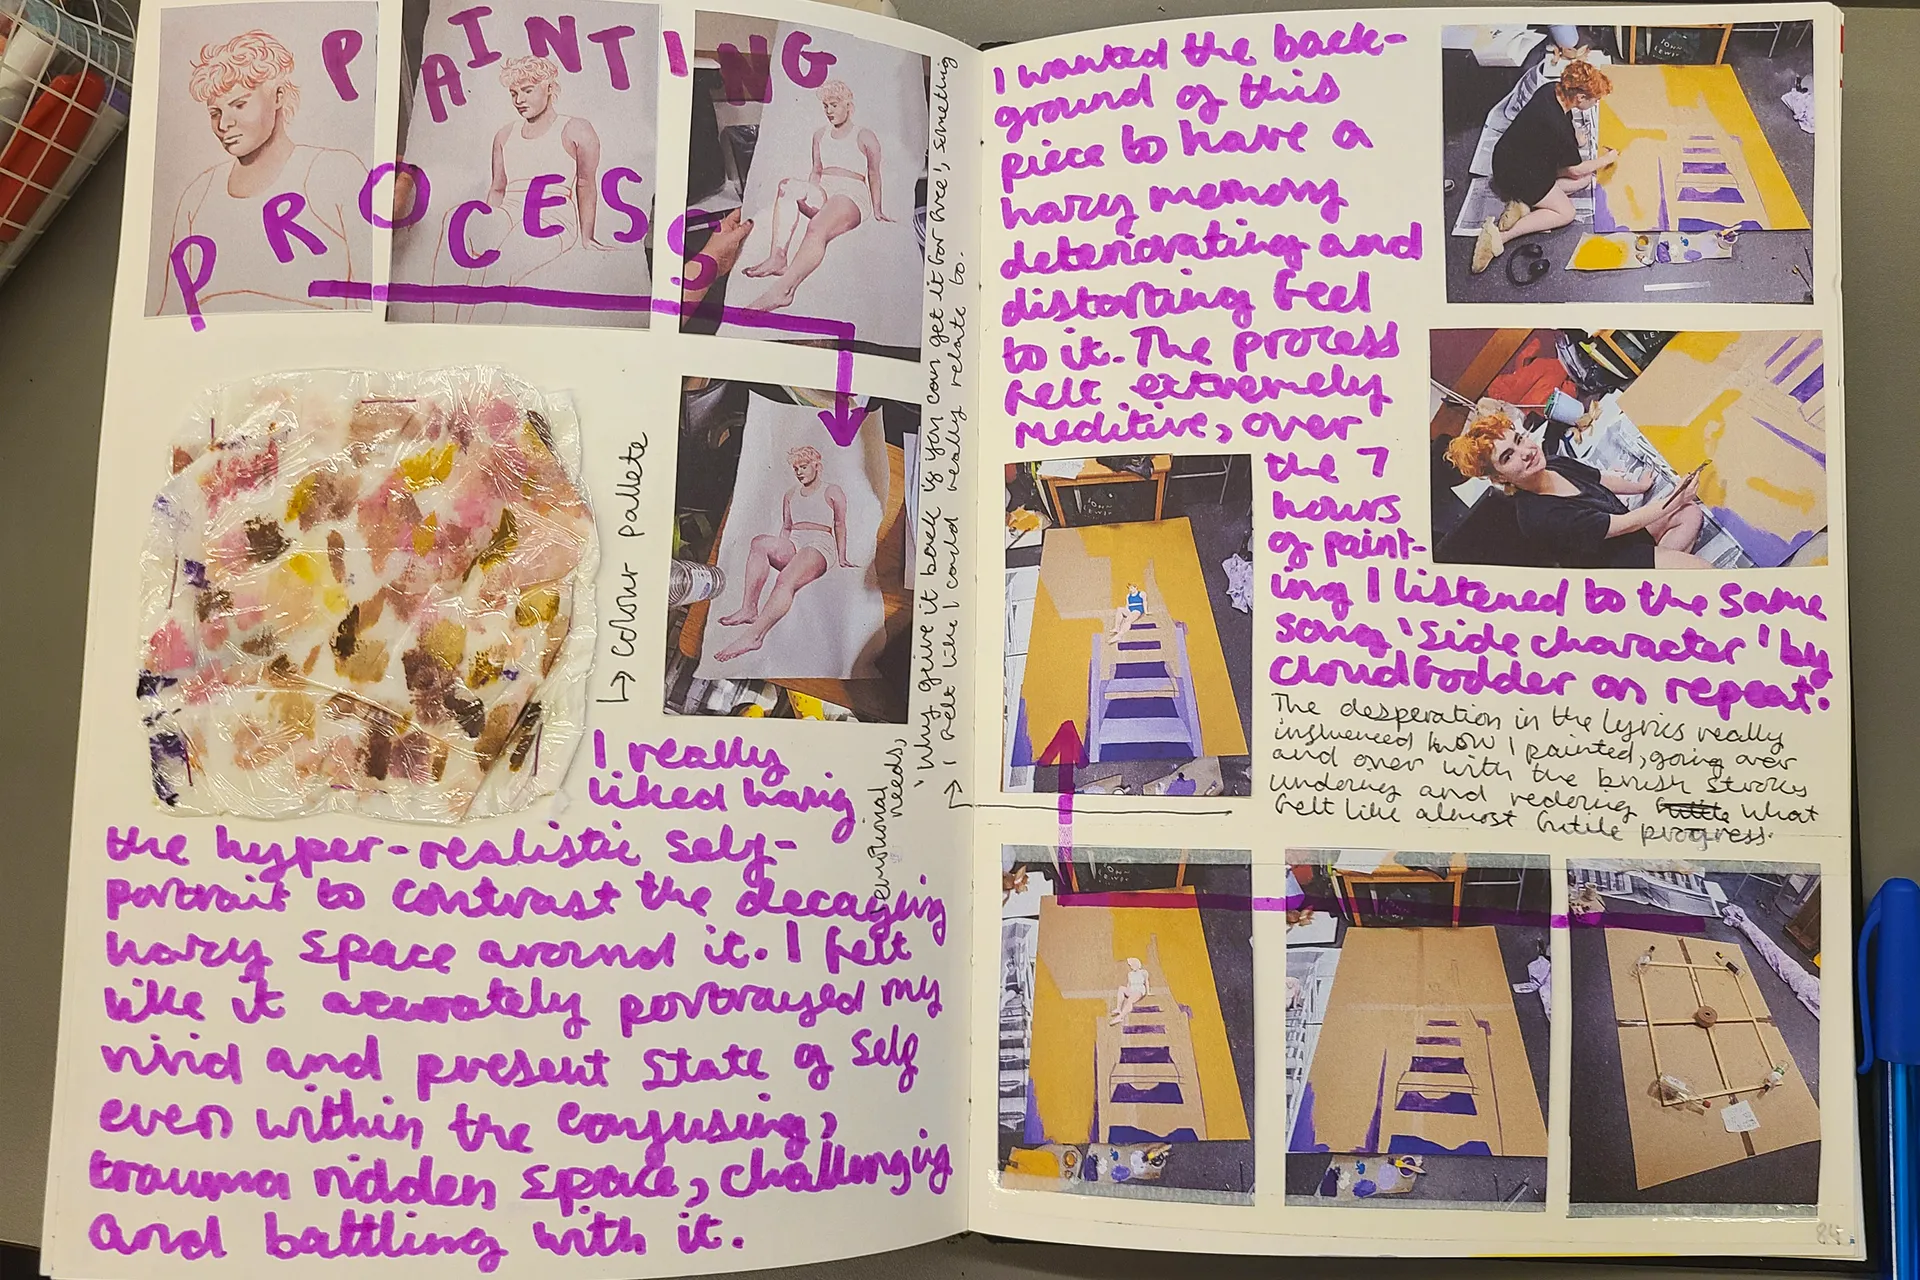 PAINTING
PROCESS
↳ colour pallete
I really
liked having
the hyper-realistic self-
portrait to contrast the decaying
hazy space around it. I felt
like it accurately portrayed my
vivid and present state of self
even within the confusing,
trauma ridden space, challenging
and battling with it.
'Why give it back if you can get it for free', something
↳ I felt like I could really relate to.
emotional needs,
I wanted the back-
ground of this
piece to have a
hazy memory
deteriorating and
distorting feel
to it. The process
felt extremely
meditive, over
the 7
hours
of paint-
ing I listened to the same
song 'Side character' by
cloudfodder on repeat.
The desperation in the lyrics really
influenced how I painted, going over
and over with the brush strokes
undoing and redoing what
felt like almost futile progress.
JOHN
LEWIS
84